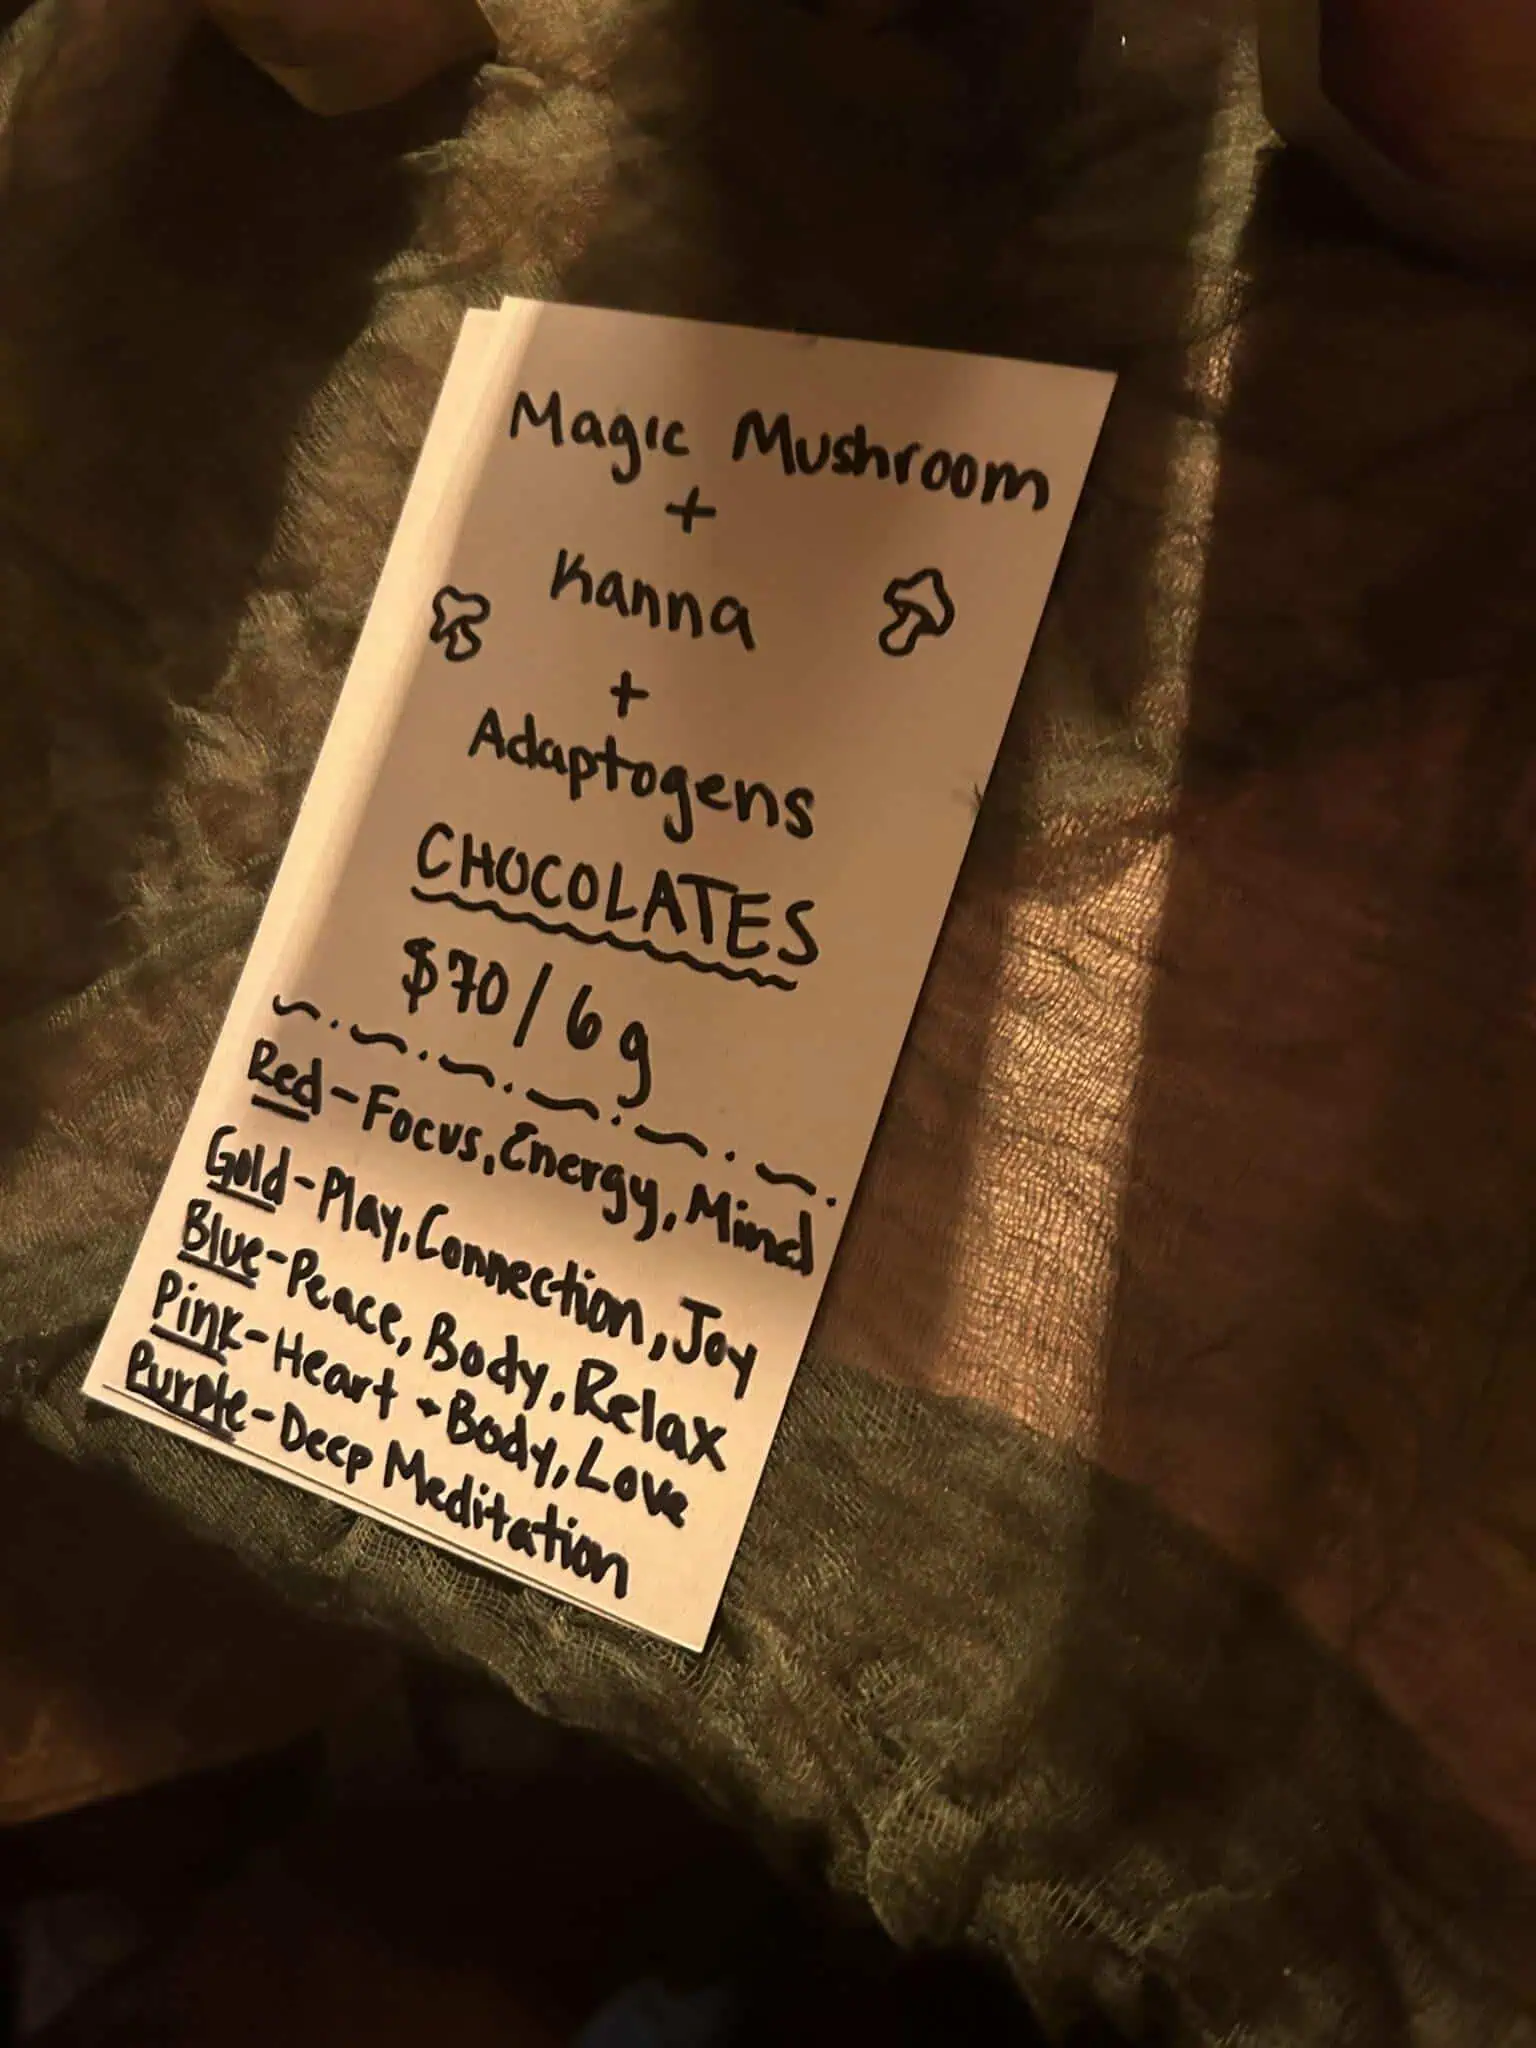 Magic Mushroom
+
Kanna
+
Adaptogens
CHOCOLATES
$70/6g
Red-Focus, Energy, Mind
Gold-Play, Connection, Joy
Blue-Peace, Body, Relax
Pink-Heart + Body, Love
Purple-Deep Meditation